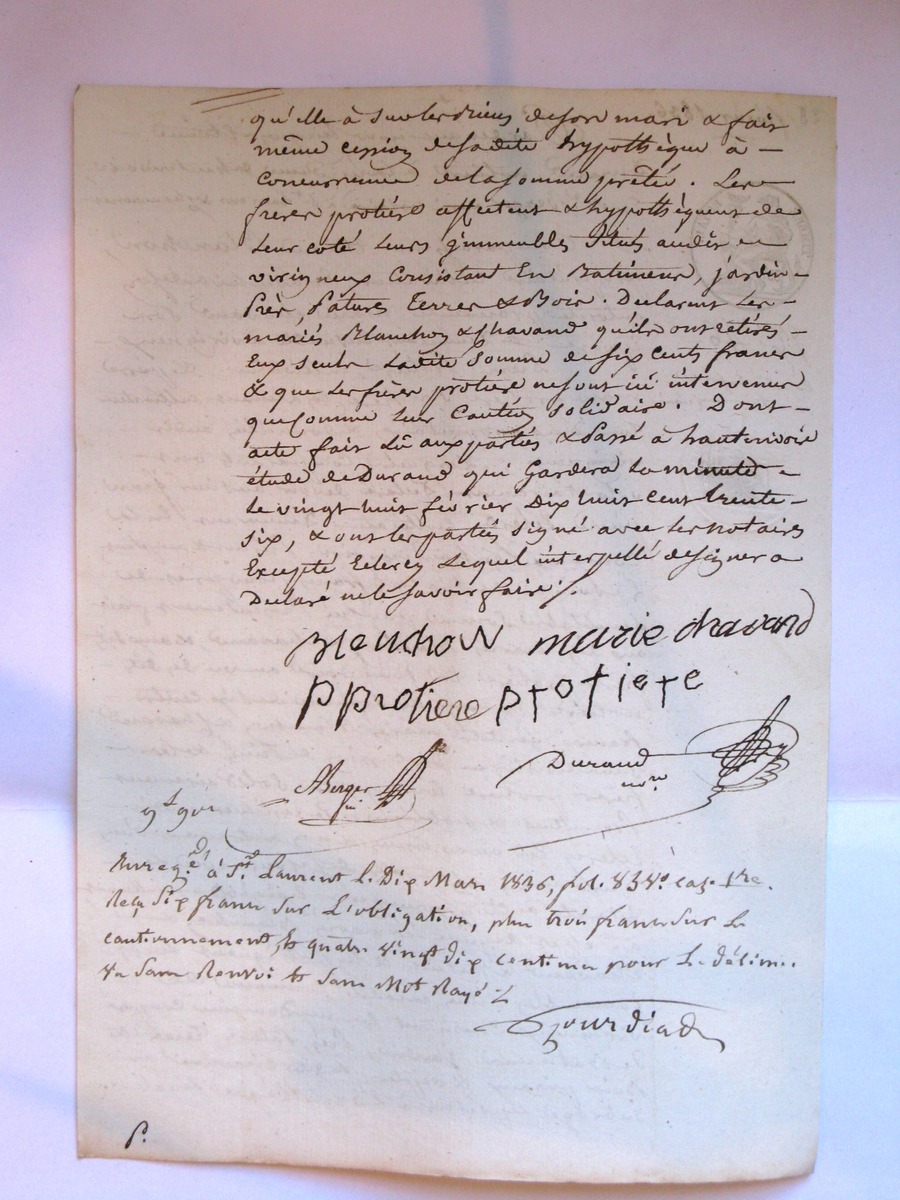 qu'elle à sur les biens de son mari & fait
même cession de sadite hypothèque à -
concurrence de la somme prêtée. Les
frères protière affectent & hypothèquent de
leur coté leurs jmmeubles situés audit
virigneux Consistant En Batimens, jardin
Prés, Patures Terres & Bois. Declarent Les -
mariés Blanchon & Chavand qu'ils ont retirés -
Eux seuls Ladite Somme de six cents francs
& que Les frères protière ne sont ici intervenus
que Comme Leur Caution solidaire. Dont -
acte fait Lû aux parties & Passé à hauterivoire
étude de Durand qui Gardera La minute
Le vingt huit février Dix huit cent trente
six, & ont les parties signé avec Les notaires
Excepté Lequel interpellé de signer a
Declaré ne le savoir faire ./.
Blenchon marie chavand
p protiere protiere
Berger Durand
nore
Enregé à St. Laurent le Dix Mars 1836, fol. 83 vo. case 1re.
Reçu Six francs sur L'obligation, plus trois francs sur le
cautionnement, et quatre vingt dix centimes pour le décime.
sans Renvoi et sans Mot Rayé
Gourdiad
P.